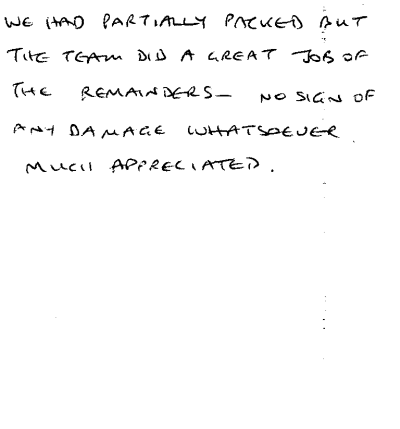 WE HAD PARTIALLY PACKED BUT
THE TEAM DID A GREAT JOB OF
THE REMAINDERS— NO SIGN OF
ANY DAMAGE WHATSOEVER.
MUCH APPRECIATED.